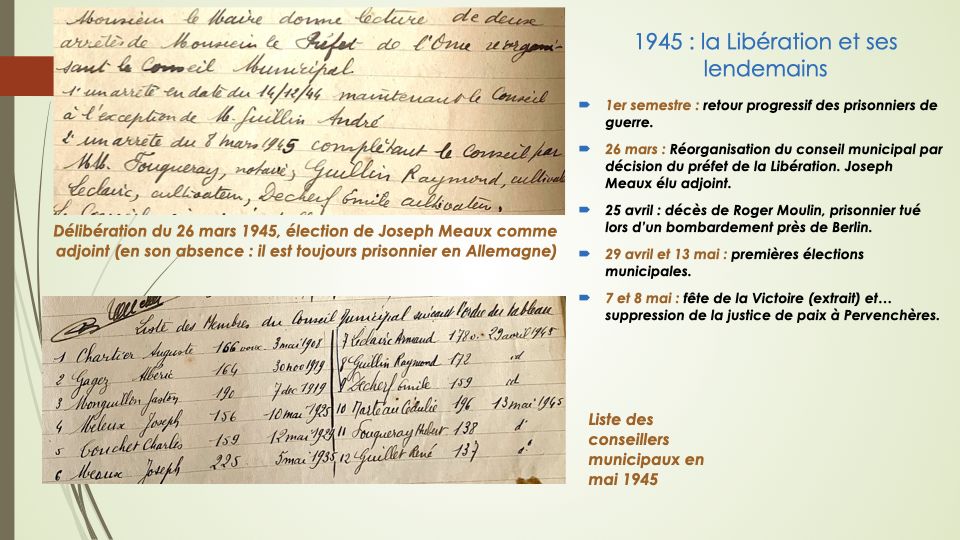 Monsieur le Maire donne lecture de deux
arrêtés de Monsieur le Préfet de l'Orne réorgani-
sant le Conseil Municipal
1° un arrêté en date du 14/12/44 maintenant le Conseil
à l'exception de M. Guillin André
2° un arrêté du 8 mars 1945 complétant le Conseil par
MM. Fouqueray, notaire, Guillin Raymond, cultivat
Leclaire, cultivateur, Decherf Émile cultivateur.
Délibération du 26 mars 1945, élection de Joseph Meaux comme
adjoint (en son absence : il est toujours prisonnier en Allemagne)
Liste des Membres du Conseil Municipal suivant l'ordre du tableau
1 Chartier Auguste 166 voix 3 mai 1908
2 Gagez Albéric 164 30 nov 1919
3 Monguillon Gaston 190 7 dec 1919
4 Meleux Joseph 156 10 mai 1925
5 Touchet Charles 159 12 mai 1929
6 Meaux Joseph 225 5 mai 1935
7 Leclaire Armand 178 v. 29 avril 1945
8 Guillin Raymond 172 id
9 Decherf Émile 159 id
10 Marteau 196 13 mai 1945
11 Fouqueray 138 d°
12 Guillet René 137 d°
1945 : la Libération et ses
lendemains
1er semestre : retour progressif des prisonniers de
guerre.
26 mars : Réorganisation du conseil municipal par
décision du préfet de la Libération. Joseph
Meaux élu adjoint.
25 avril : décès de Roger Moulin, prisonnier tué
lors d'un bombardement près de Berlin.
29 avril et 13 mai : premières élections
municipales.
7 et 8 mai : fête de la Victoire (extrait) et…
suppression de la justice de paix à Pervenchères.
Liste des
conseillers
municipaux en
mai 1945